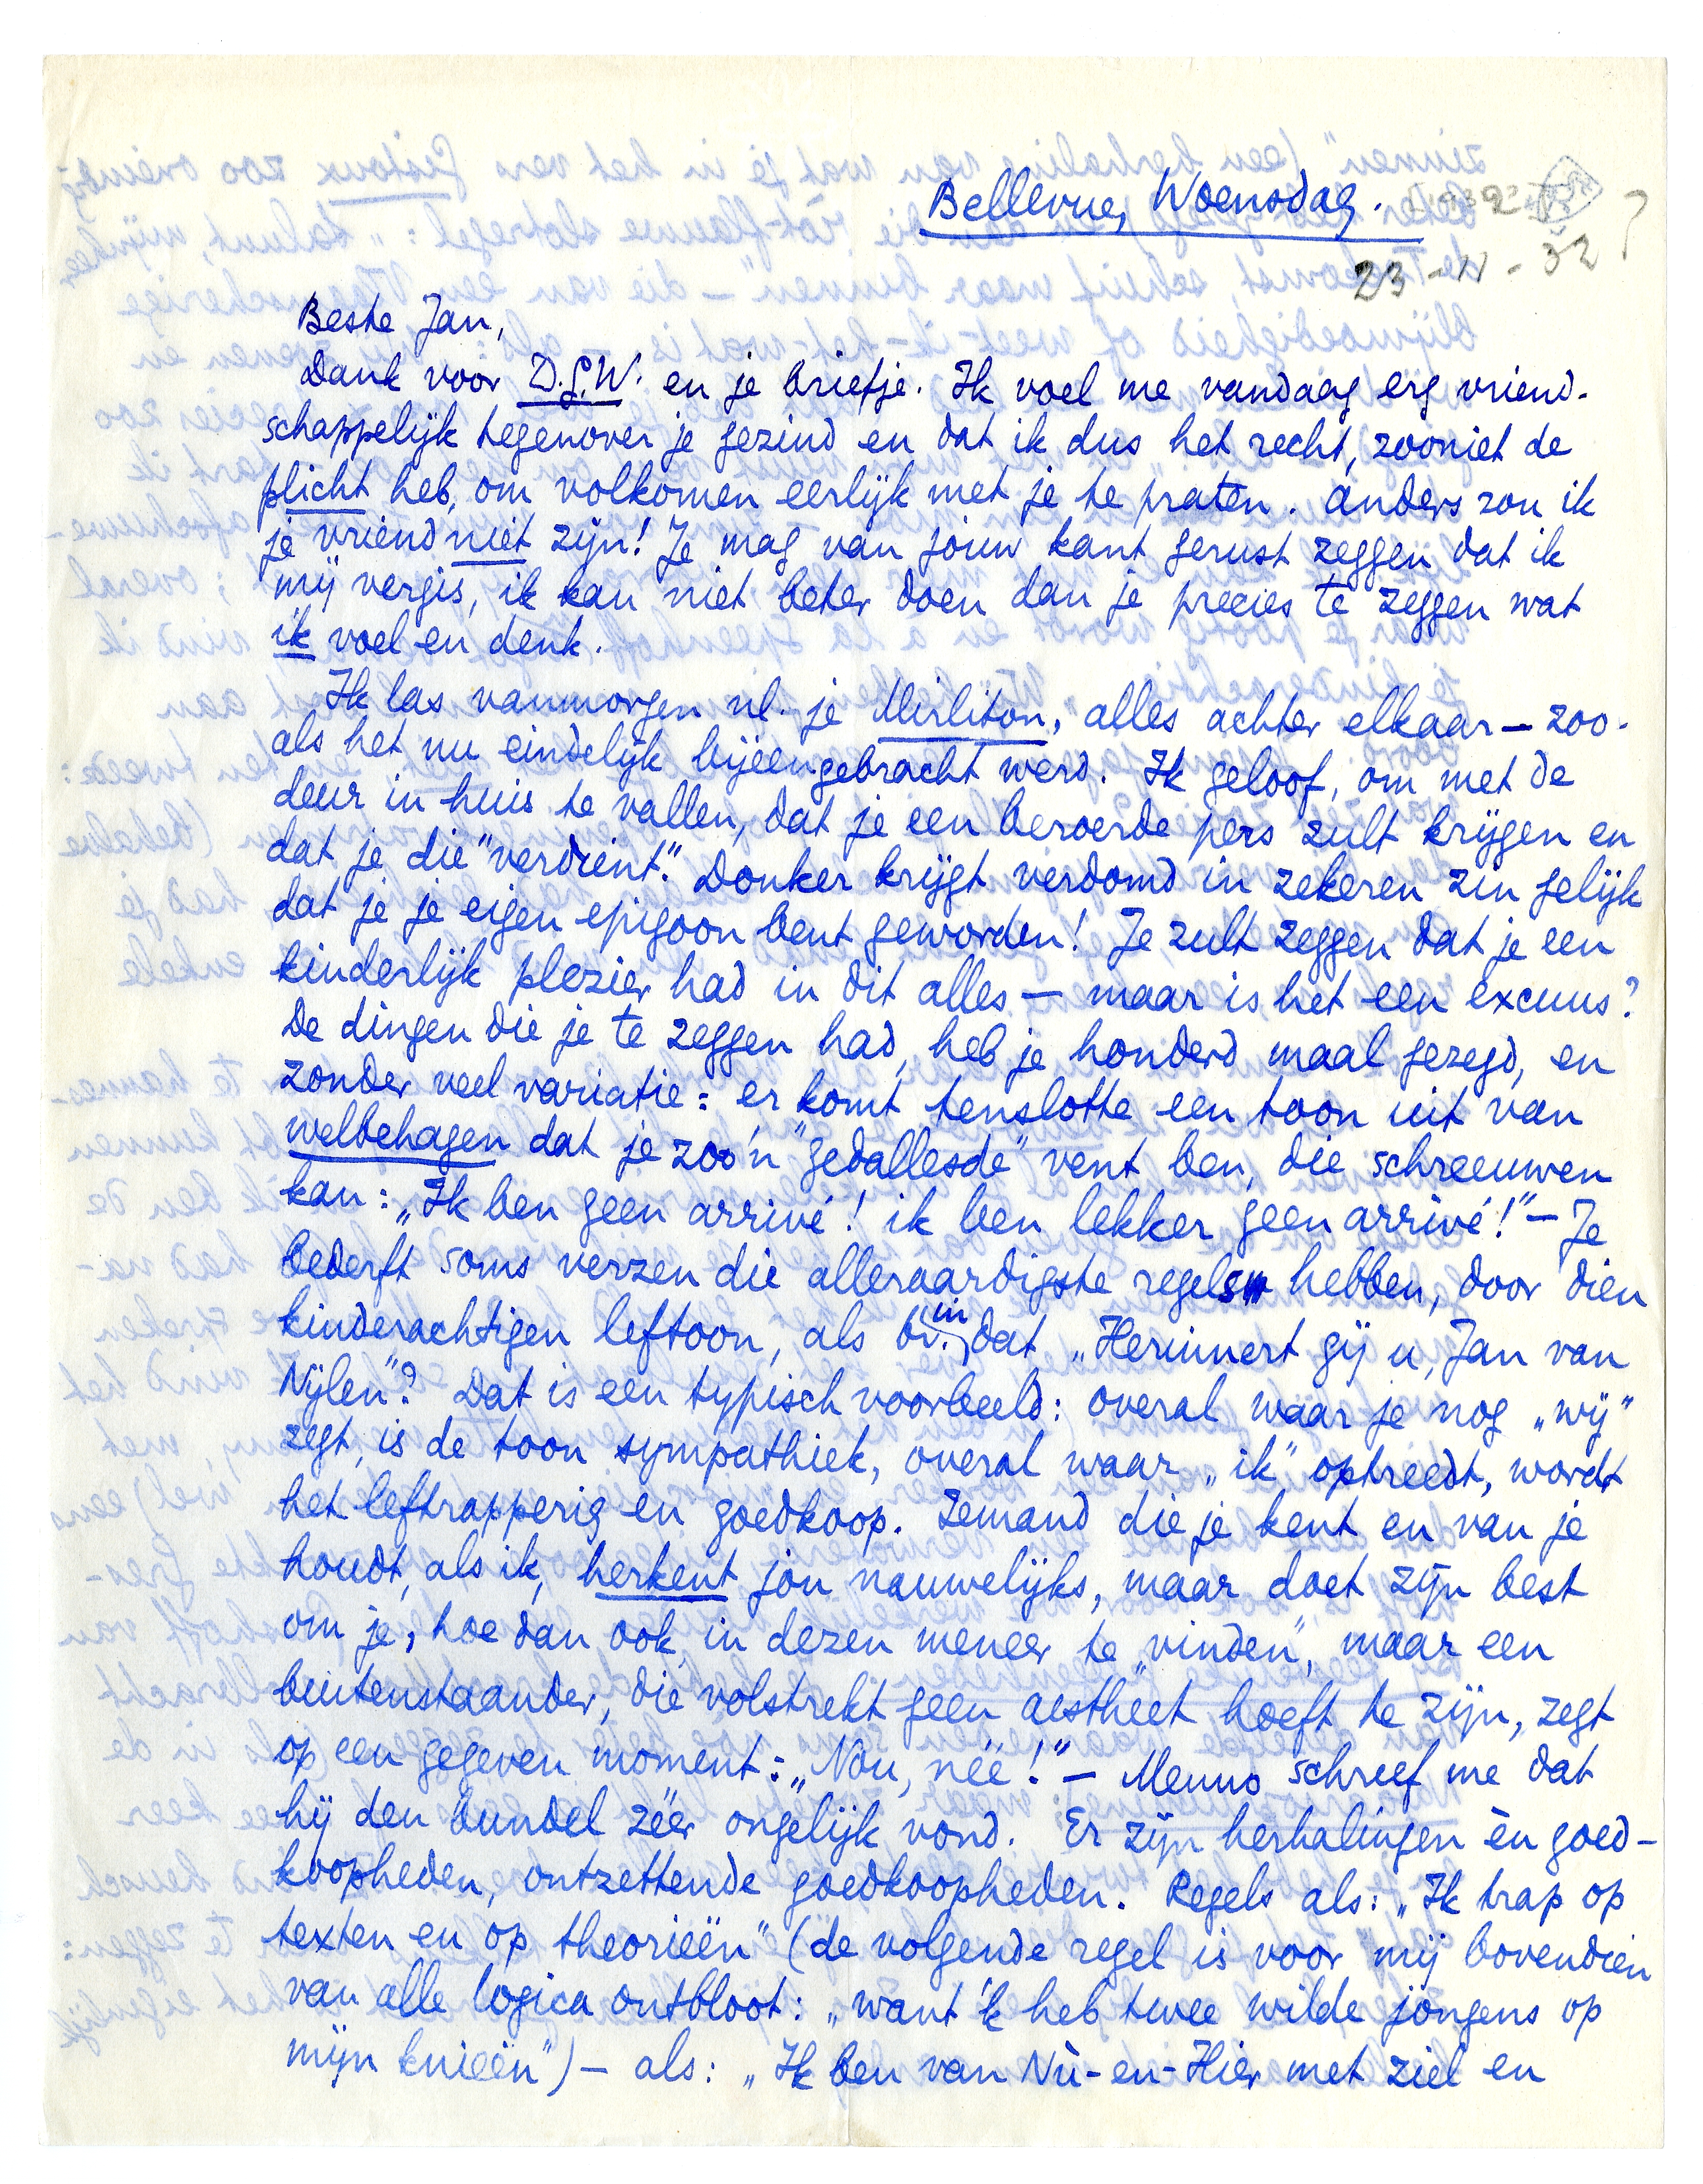 Bellevue, Woensdag.
23-11-32?
Beste Jan,
Dank voor D.G.W. en je briefje. Ik voel me vandaag erg vriend-
schappelijk tegenover je gezind en dat ik dus het recht, zooniet de
plicht heb, om volkomen eerlijk met je te praten. Anders zou ik
je vriend niet zijn! Je mag van jouw kant gerust zeggen dat ik
mij vergis, ik kan niet beter doen dan je precies te zeggen wat
ik voel en denk.
Ik las vanmorgen nl. je Mirliton, alles achter elkaar — zoo-
als het nu eindelijk bijeengebracht werd. Ik geloof, om met de
deur in huis te vallen, dat je een beroerde pers zult krijgen en
dat je die "verdient". Donker krijgt verdomd in zekeren zin gelijk
dat je je eigen epigoon bent geworden! Je zult zeggen dat je een
kinderlijk plezier had in dit alles — maar is het een excuus?
De dingen die je te zeggen had, heb je honderd maal gezegd, en
zonder veel variatie: er komt tenslotte een toon uit van
welbehagen dat je zoo'n "gedallesde" vent ben, die schreeuwen
kan: „Ik ben geen arrivé! ik ben lekker geen arrivé!" — Je
bederft soms verzen die alleraardigste regels hebben, door dien
kinderachtigen leftoon, als bv. in dat „Herinnert gij u, Jan van
Nijlen"? Dat is een typisch voorbeeld: overal waar je nog „wij"
zegt, is de toon sympathiek, overal waar „ik" optreedt, wordt
het leftrapperig en goedkoop. Iemand die je kent en van je
houdt, als ik, herkent jou nauwelijks, maar doet zijn best
om je, hoe dan ook, in dezen meneer te „vinden", maar een
buitenstaander, die volstrekt geen aestheet hoeft te zijn, zegt
op een gegeven moment: „Nou, née!" — Menno schreef me dat
hij den bundel zéér ongelijk vond. Er zijn herhalingen èn goed-
koopheden, ontzettende goedkoopheden. Regels als: „Ik trap op
texten en op theorieën" (de volgende regel is voor mij bovendien
van alle logica ontbloot: „want 'k heb twee wilde jongens op
mijn knieën") — als: „Ik ben van Nù-en-Hier met ziel en